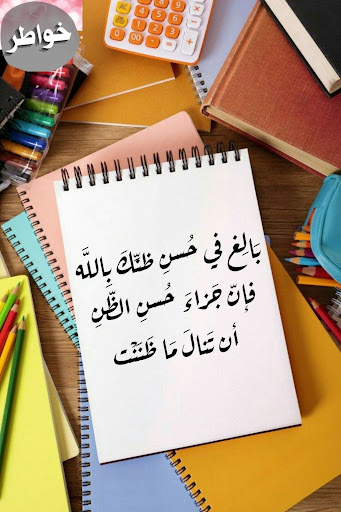 خواطر
بَالِغ في حُسنِ ظنّكَ بِاللَّه
فإنّ جَزاءَ حُسنِ الظّنِ
أن تَنالَ مَا ظَنَنْت